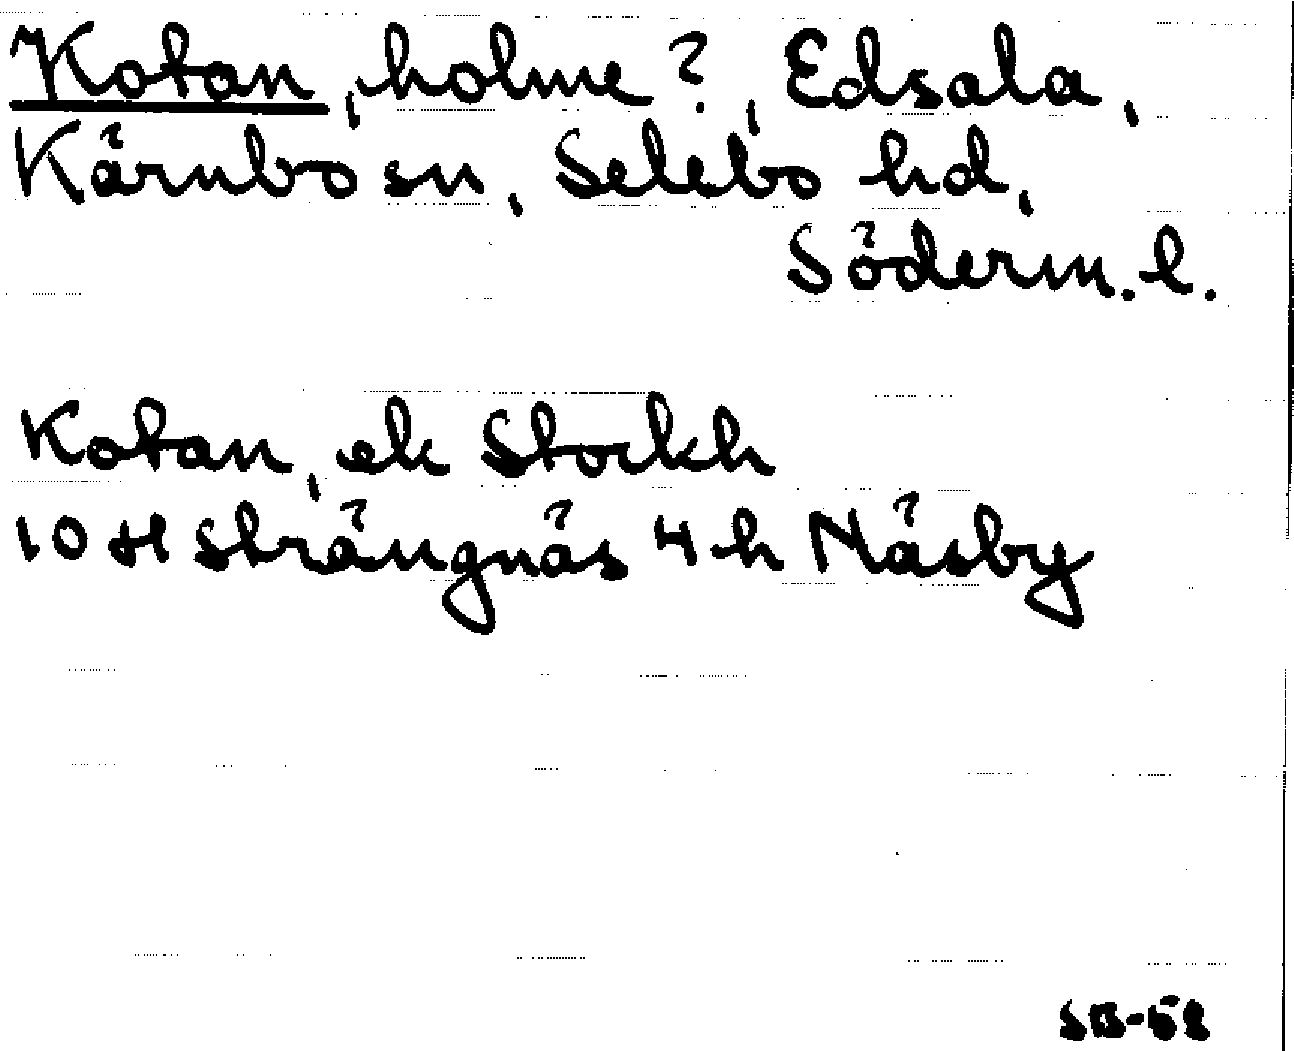 Kotan, holme?, Edsala,
Kärnbo sn, Selebo hd,
Söderm. l.
Kotan, ek Stockh
10 H Strängnäs 4 h Näsby
SB-52